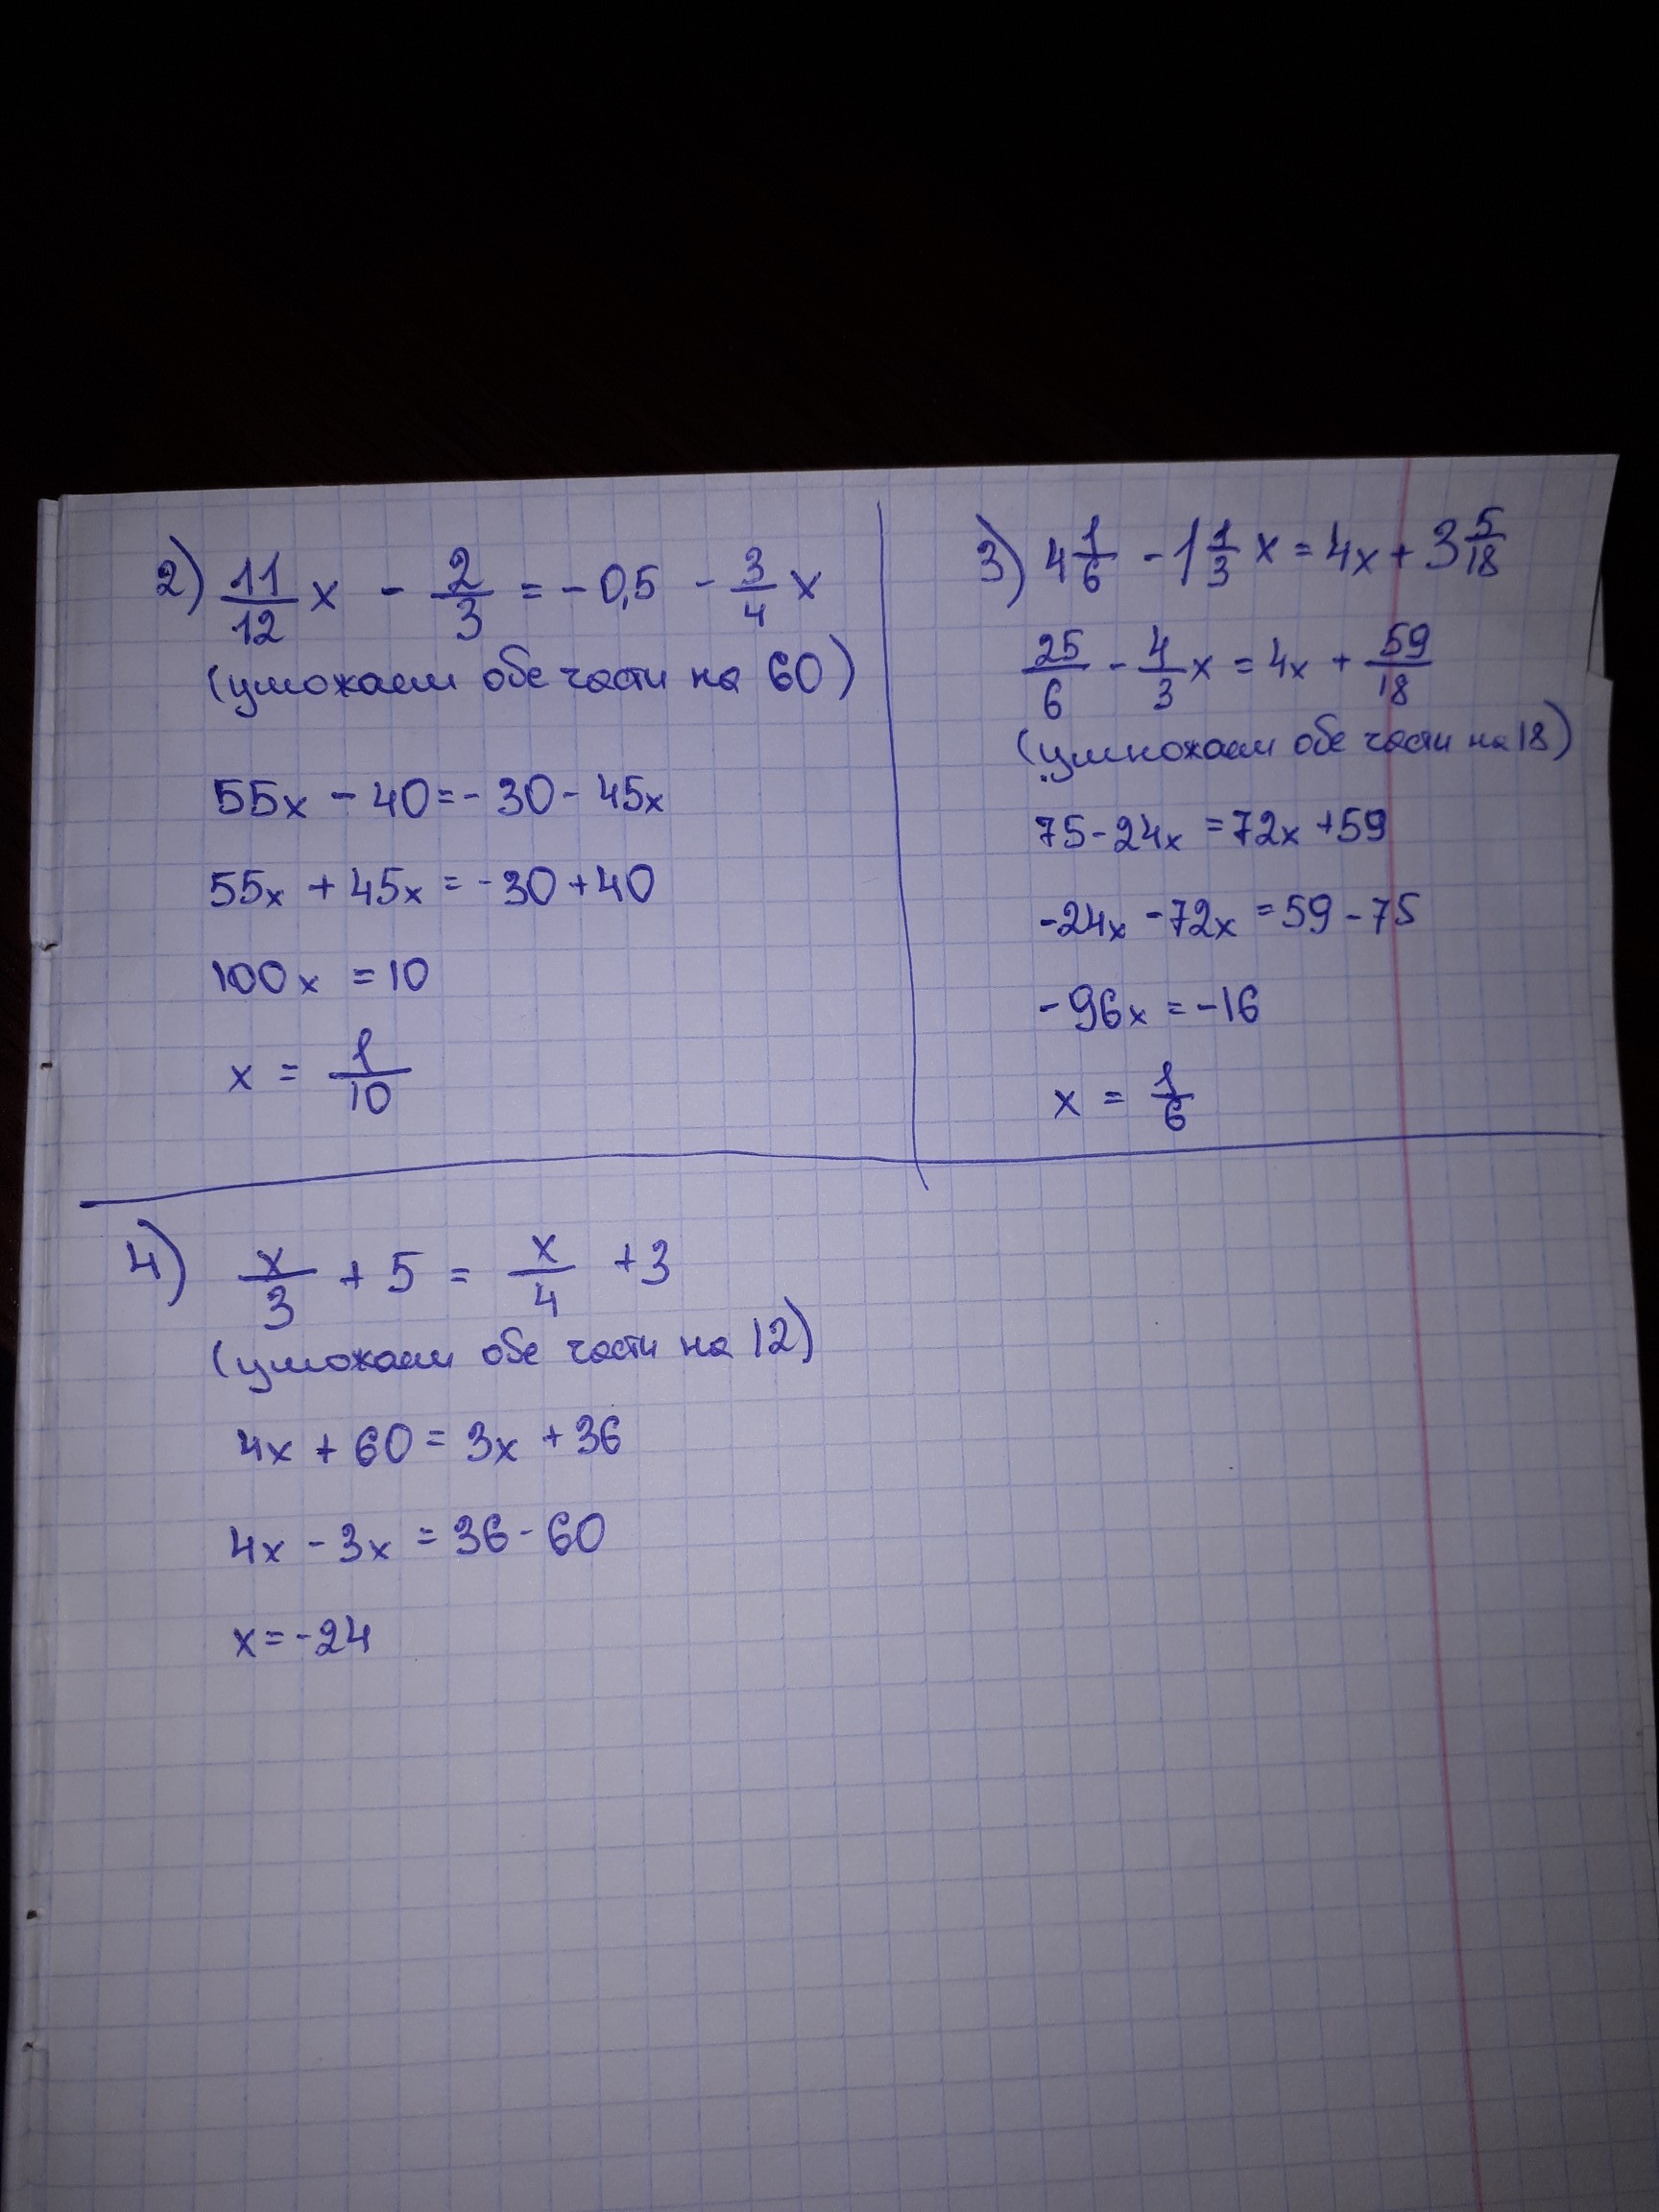 2) 11/12 x - 2/3 = -0,5 - 3/4 x
(уможаем обе части на 60)
55x - 40 = -30 - 45x
55x + 45x = -30 + 40
100x = 10
x = 1/10
3) 4 1/6 - 1 1/3 x = 4x + 3 5/18
25/6 - 4/3 x = 4x + 59/18
(умножаем обе части на 18)
75 - 24x = 72x + 59
-24x - 72x = 59 - 75
-96x = -16
x = 1/6
4) x/3 + 5 = x/4 + 3
(уможаем обе части на 12)
4x + 60 = 3x + 36
4x - 3x = 36 - 60
x = -24